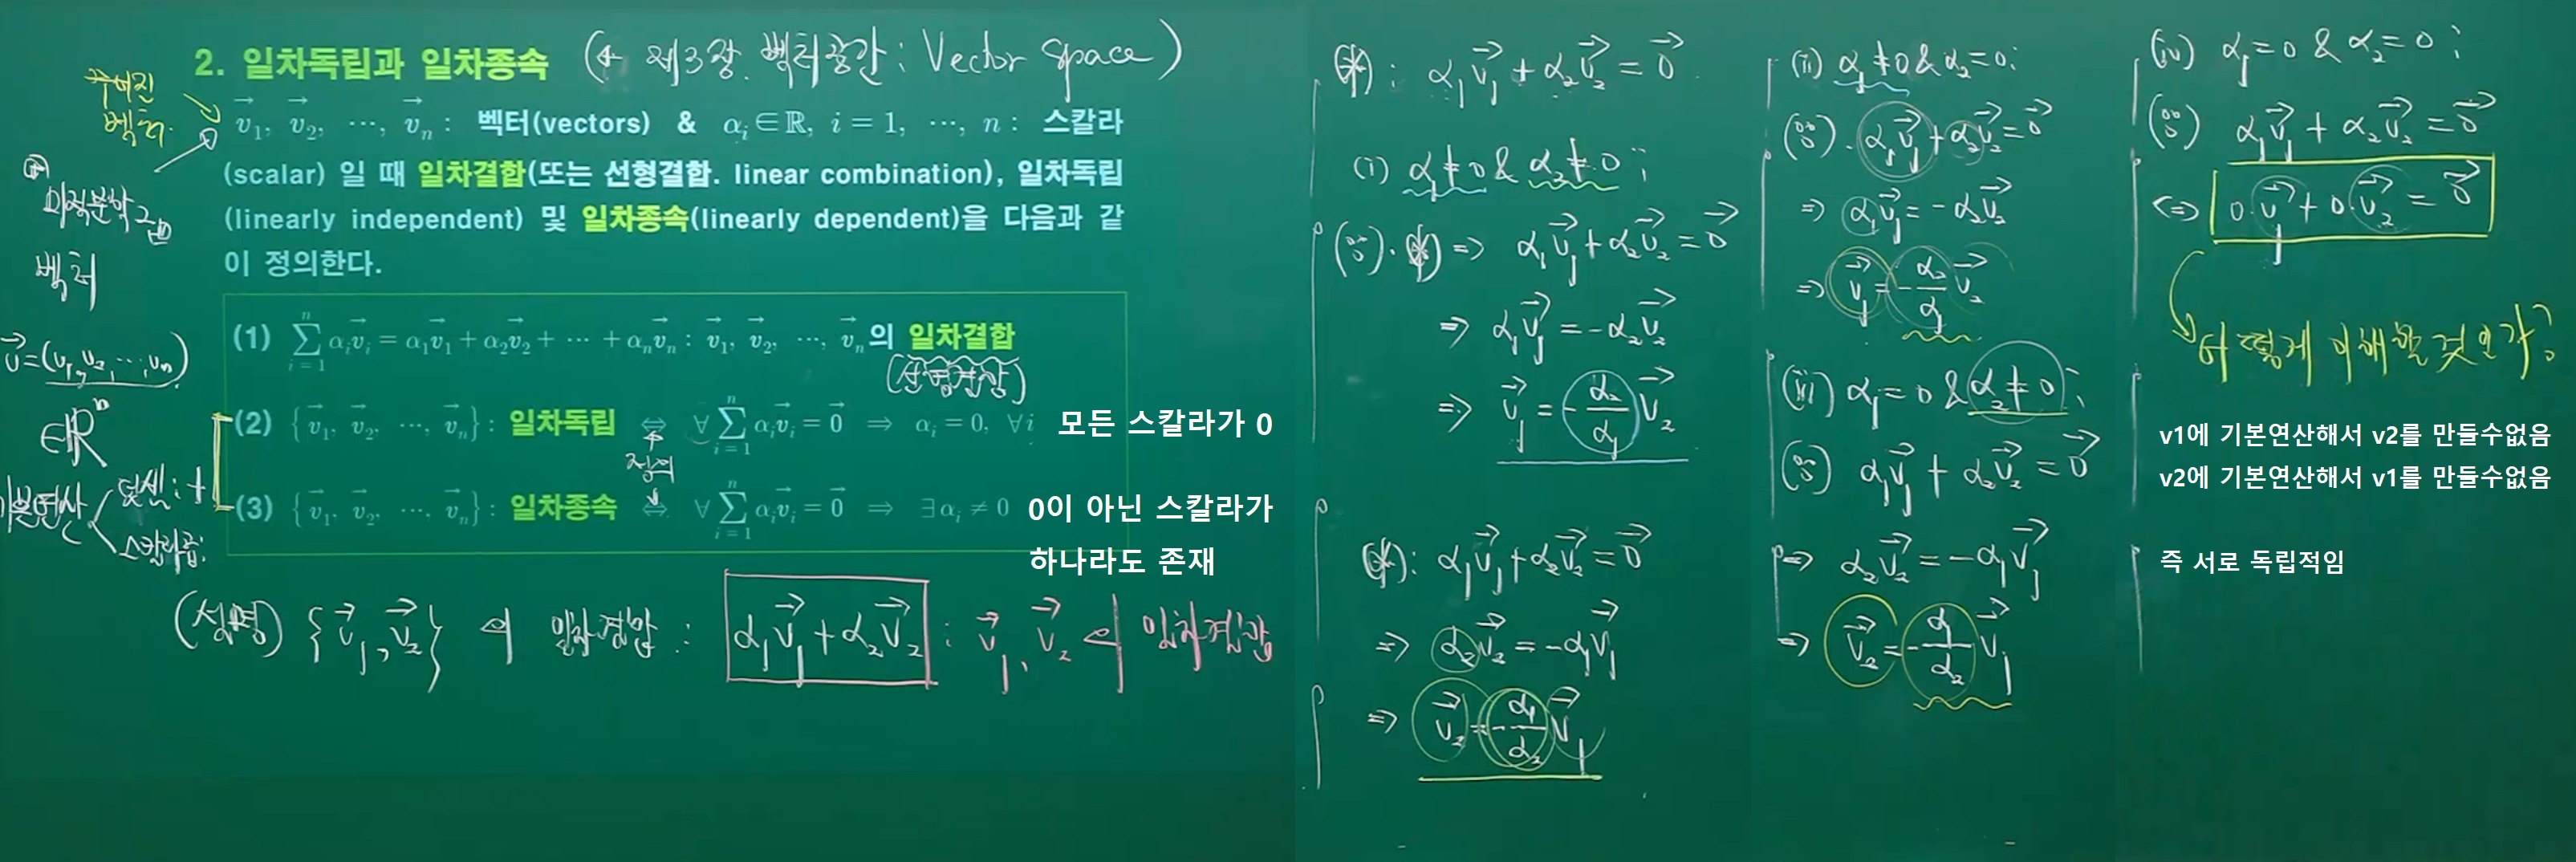 2. 일차독립과 일차종속 (← 제3장. 벡터공간 : Vector Space)
주어진
벡터.
v⃗₁, v⃗₂, ⋯, v⃗ₙ : 벡터(vectors) & αᵢ∈ℝ, i = 1, ⋯, n : 스칼라
(scalar) 일 때 일차결합(또는 선형결합. linear combination), 일차독립
(linearly independent) 및 일차종속(linearly dependent)을 다음과 같
이 정의한다.
미적분학
벡터
v⃗=(v₁, v₂, ⋯, vₙ)
∈ℝⁿ
기본연산
덧셈 : +
스칼라곱 :
(1) ∑ᵢ₌₁ⁿ αᵢv⃗ᵢ = α₁v⃗₁ + α₂v⃗₂ + ⋯ + αₙv⃗ₙ : v⃗₁, v⃗₂, ⋯, v⃗ₙ의 일차결합
(선형결합)
(2) {v⃗₁, v⃗₂, ⋯, v⃗ₙ} : 일차독립 ⇔ ∀ ∑ᵢ₌₁ⁿ αᵢv⃗ᵢ = 0⃗ ⇒ αᵢ = 0, ∀i 모든 스칼라가 0
정의
(3) {v⃗₁, v⃗₂, ⋯, v⃗ₙ} : 일차종속 ⇔ ∀ ∑ᵢ₌₁ⁿ αᵢv⃗ᵢ = 0⃗ ⇒ ∃αᵢ ≠ 0 0이 아닌 스칼라가
하나라도 존재
(설명) {v⃗₁, v⃗₂} 의 일차결합 : α₁v⃗₁ + α₂v⃗₂ : v⃗₁, v⃗₂ 의 일차결합
(*) : α₁v⃗₁ + α₂v⃗₂ = 0⃗
(i) α₁≠0 & α₂≠0 ;
(∵) (*) ⇒ α₁v⃗₁ + α₂v⃗₂ = 0⃗
⇒ α₁v⃗₁ = -α₂v⃗₂
⇒ v⃗₁ = -α₂/α₁ v⃗₂
(*) : α₁v⃗₁ + α₂v⃗₂ = 0⃗
⇒ α₂v⃗₂ = -α₁v⃗₁
⇒ v⃗₂ = -α₁/α₂ v⃗₁
(ii) α₁≠0 & α₂=0 ;
(∵) α₁v⃗₁ + α₂v⃗₂ = 0⃗
⇒ α₁v⃗₁ = -α₂v⃗₂
⇒ v⃗₁ = -α₂/α₁ v⃗₂
(iii) α₁=0 & α₂≠0 ;
(∵) α₁v⃗₁ + α₂v⃗₂ = 0⃗
⇒ α₂v⃗₂ = -α₁v⃗₁
⇒ v⃗₂ = -α₁/α₂ v⃗₁
(iv) α₁=0 & α₂=0 ;
(∵) α₁v⃗₁ + α₂v⃗₂ = 0⃗
⇔ 0·v⃗₁ + 0·v⃗₂ = 0⃗
어떻게 이해할것인가?
v1에 기본연산해서 v2를 만들수없음
v2에 기본연산해서 v1를 만들수없음
즉 서로 독립적임